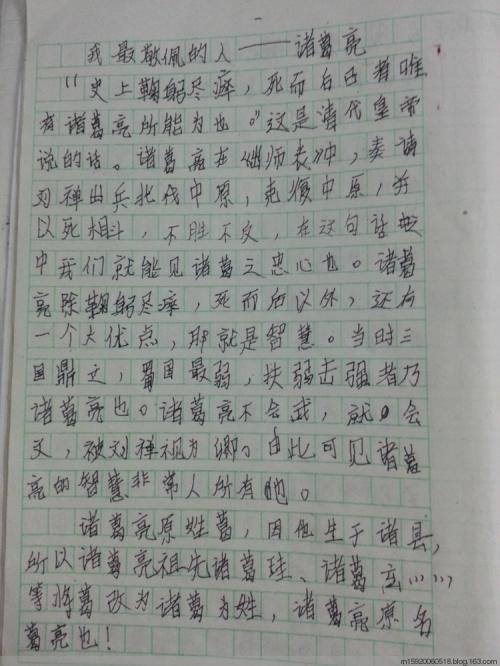 我最敬佩的人——诸葛亮
“史上鞠躬尽瘁，死而后已者唯
有诸葛亮所能为也。”这是清代皇帝
说的话。诸葛亮在《出师表》中，奏请
刘禅出兵北伐中原，克复中原，并
以死相斗，不胜不
，在这句话
中我们就能见诸葛之忠心也。诸葛
亮除鞠躬尽瘁，死而后以外，还有
一个大优点，那就是智慧。当时三
国鼎立，蜀国最弱，扶弱击强者乃
诸葛亮也。诸葛亮不会武，就会
文，被刘禅视为卿。由此可见诸葛
亮的智慧非常人所有也。
诸葛亮原姓葛，因他生于诸县，
所以诸葛亮祖先诸葛珪、诸葛玄……
等将葛改为诸葛为姓，诸葛亮原名
葛亮也！
m15920060518.blog.163.com